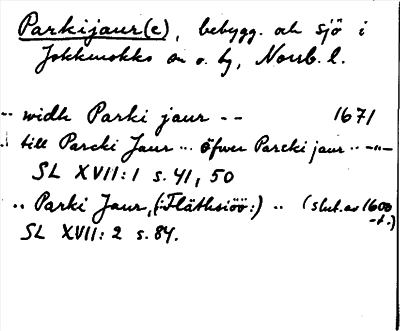 Parkijaur(e), bebygg. och sjö i
Jokkmokks sn o. tg, Norrb. l.
-- widh Parki jaur -- 1671
.. till Parcki Jaur ... öfwer Parcki jaur .. -"-
SL XVII:1 s. 41, 50
.. Parki Jaur, (:Fläthsiöö:) .. (slut. av 1600
-t.)
SL XVII: 2 s. 84.